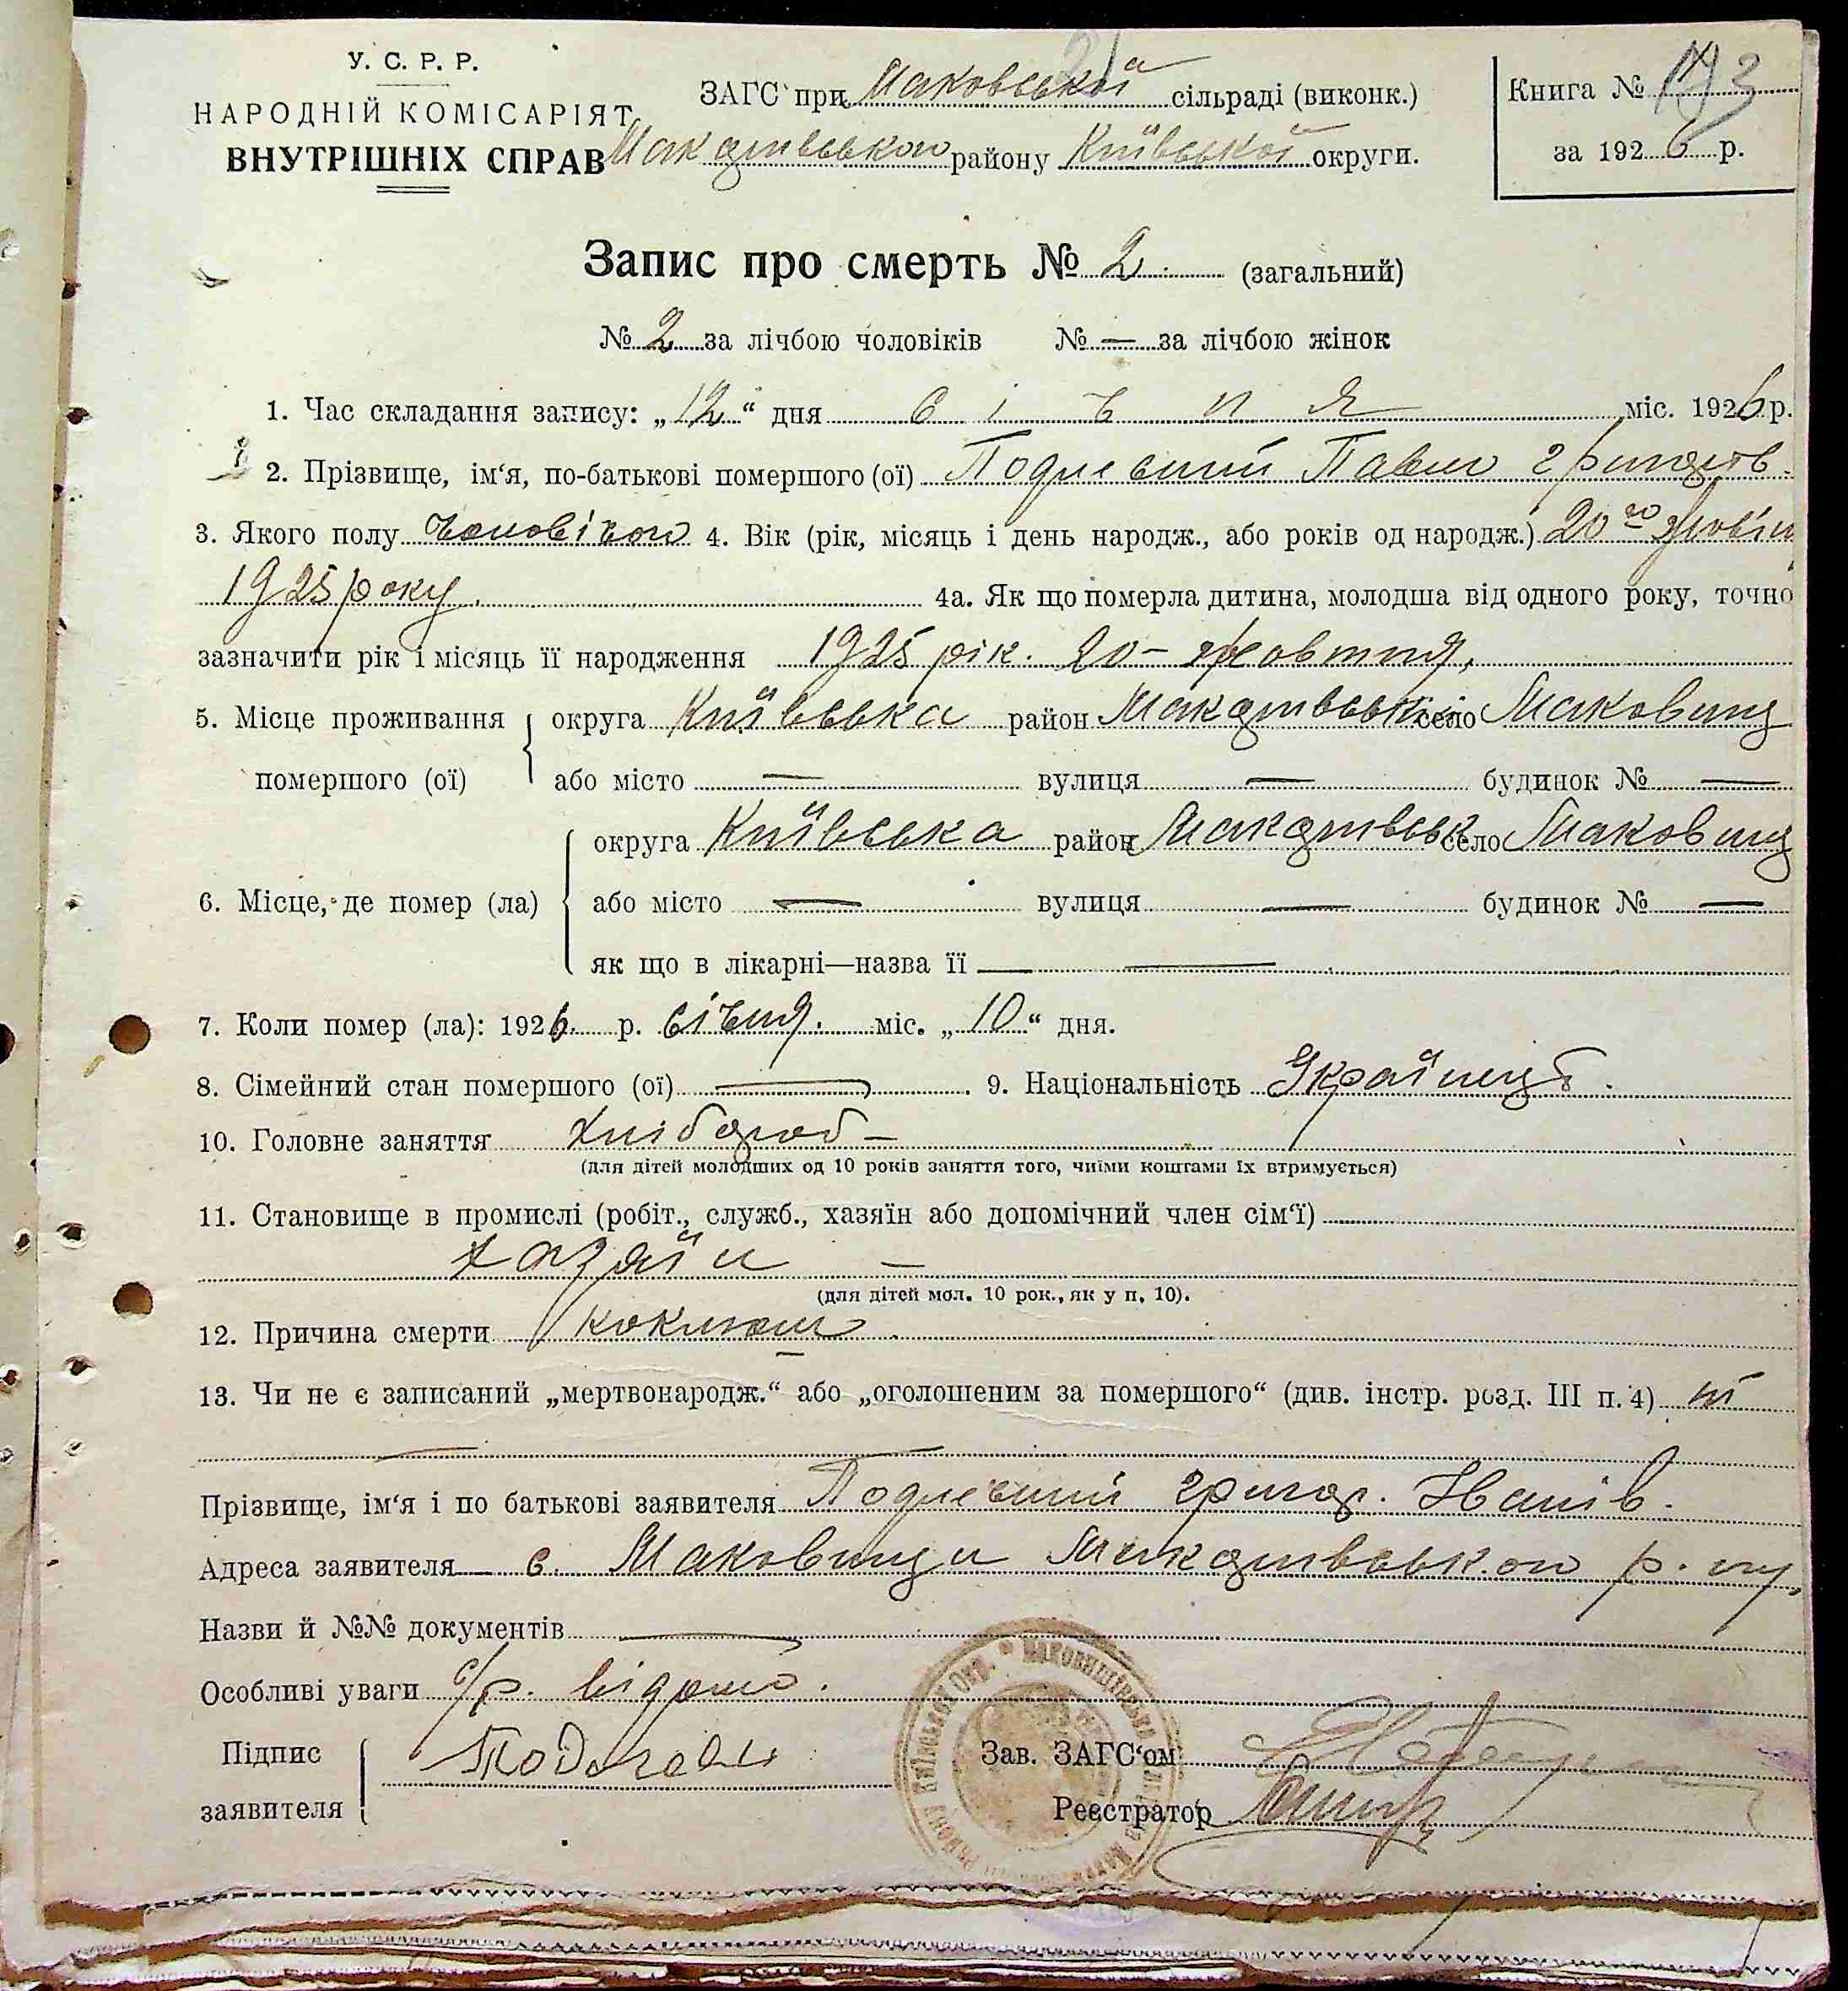 У. С. Р. Р.
НАРОДНІЙ КОМІСАРІЯТ
ВНУТРІШНІХ СПРАВ
ЗАГС при Маковської сільраді (виконк.)
Макарівського району Київської округи.
Книга №
за 1926 р.
Запис про смерть № 2. (загальний)
№ 2 за лічбою чоловіків № — за лічбою жінок
1. Час складання запису: „12“ дня січня міс. 1926 р.
2. Прізвище, ім‘я, по-батькові помершого (ої) Павло Григоров.
3. Якого полу чоловічого 4. Вік (рік, місяць і день народж., або років од народж.) 20го Жовтня
1925 року. 4а. Як що померла дитина, молодша від одного року, точно
зазначити рік і місяць її народження 1925 рік. 20 – жовтня.
5. Місце проживання помершого (ої) округа Київська район Макарівськ село Маковищ
або місто — вулиця — будинок № —
6. Місце, де помер (ла) округа Київська район Макарівськ село Маковищ
або місто — вулиця — будинок № —
як що в лікарні—назва її —
7. Коли помер (ла): 1926. р. січня. міс. „10“ дня.
8. Сімейний стан помершого (ої) — 9. Національність Українець.
10. Головне заняття Хлібороб –
(для дітей молодших од 10 років заняття того, чиїми коштами їх втримується)
11. Становище в промислі (робіт., служб., хазяїн або допомічний член сім‘ї)
хазяїн –
(для дітей мол. 10 рок., як у п. 10).
12. Причина смерти коклюш
13. Чи не є записаний „мертвонародж.“ або „оголошеним за помершого“ (див. інстр. розд. III п. 4) ні
Прізвище, ім‘я і по батькові заявителя Григор. Іванів.
Адреса заявителя с. Маковищи Макарівського р-ну.
Назви й №№ документів —
Особливі уваги с/р. відомо.
Підпис заявителя
Зав. ЗАГС‘ом
Реєстратор